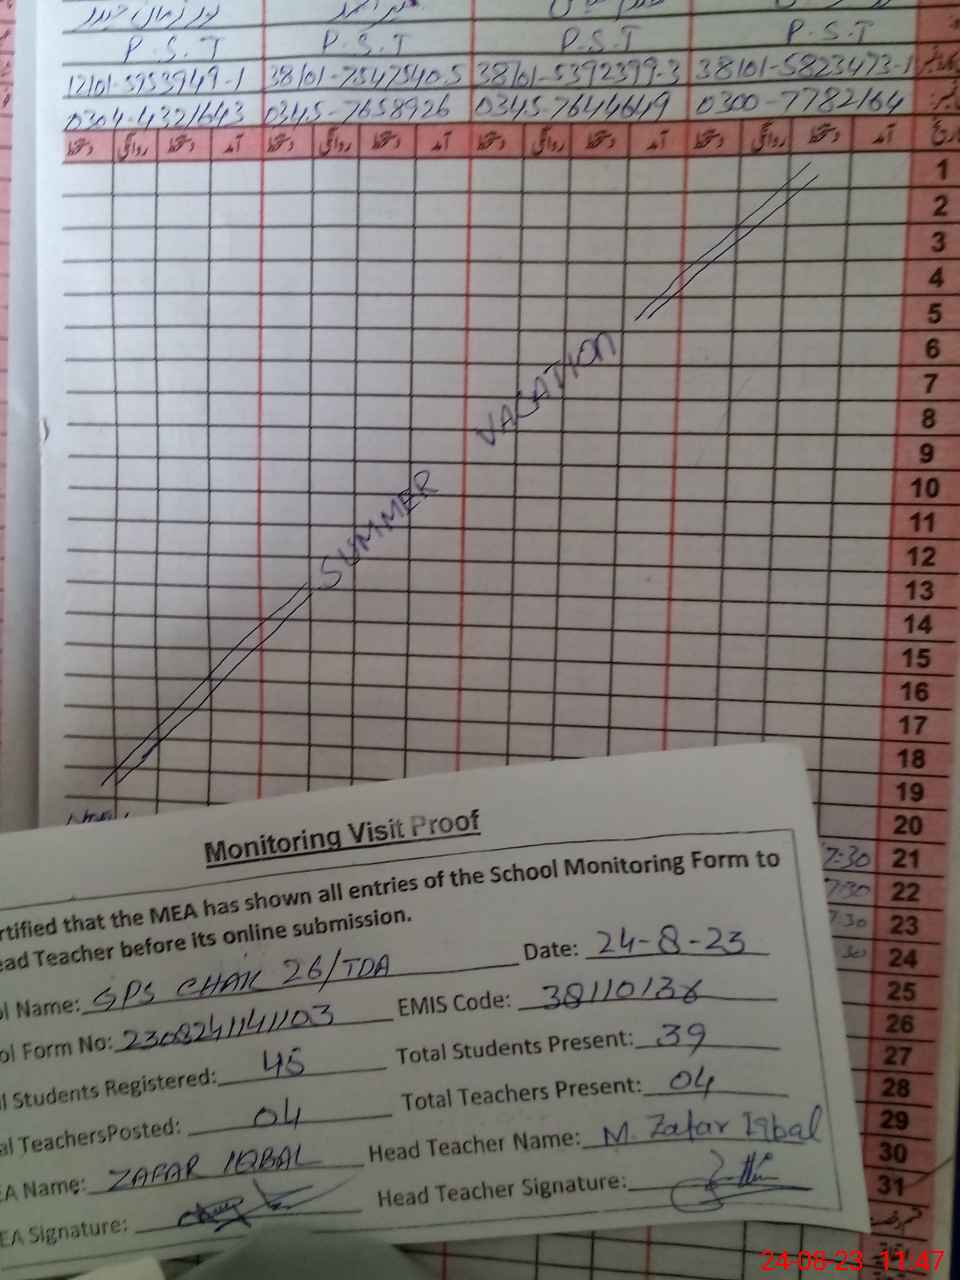 P.S.T P.S.T P.S.T P.S.T
12101-5953949-1 38101-7547540.5 38101-5392399-3 38101-5823473-1
0304-4321643 0345-7658926 0345-7644649 0300-7782164
آمد دستخط روانگی دستخط آمد دستخط روانگی دستخط آمد دستخط روانگی دستخط آمد دستخط روانگی دستخط
1
2
3
4
5
6
7
8
9
10
11
12
13
14
15
16
17
18
19
20
7:30 21
7:30 22
7:30 23
30 24
25
26
27
28
29
30
31
SUMMER VACATION
Monitoring Visit Proof
rtified that the MEA has shown all entries of the School Monitoring Form to
ead Teacher before its online submission.
ol Name: GPS CHAK 26/TDA Date: 24-8-23
ol Form No: 2308241141103 EMIS Code: 38110136
l Students Registered: 45 Total Students Present: 39
al TeachersPosted: 04 Total Teachers Present: 04
EA Name: ZAFAR IQBAL Head Teacher Name: M. Zafar Iqbal
EA Signature: Head Teacher Signature:
24-08-23 11:47